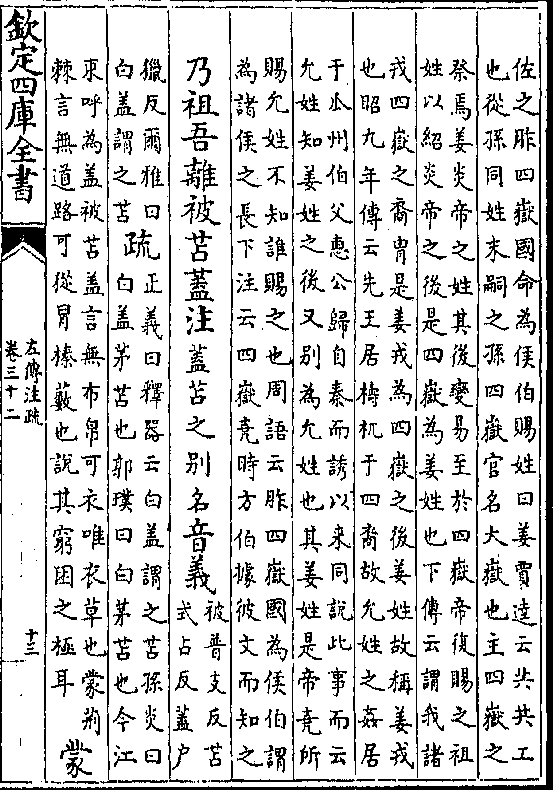 佐之胙四嶽國命為侯伯賜姓曰姜賈逵云共共工
也從孫同姓末嗣之孫四嶽官名大嶽也主四嶽之
祭焉姜炎帝之姓其後變易至於四嶽帝復賜之祖
姓以紹炎帝之後是四嶽為姜姓也下傳云謂我諸
戎四嶽之裔胄是姜戎為四嶽之後姜姓故稱姜戎
也昭九年傳云先王居檮杌于四裔故允姓之姦居
于瓜州伯父惠公歸自秦而誘以來同說此事而云
允姓知姜姓之後又別為允姓也其姜姓是帝堯所
賜允姓不知誰賜之也周語云胙四嶽國為侯伯謂
為諸侯之長下注云四嶽堯時方伯據彼文而知之
乃祖吾離被苫蓋注蓋苫之別名音義
被普支反苫
式占反蓋户
獵反爾雅曰
白盖謂之苫
疏
正義曰釋器云白盖謂之苫孫炎曰
白盖茅苫也郭璞曰白茅苫也今江
東呼為盖被苫盖言無布帛可衣唯衣草也蒙荆
棘言無道路可從冒榛藪也說其窮困之極耳
蒙
欽定四庫全書
左傳注疏
卷三十二
十三